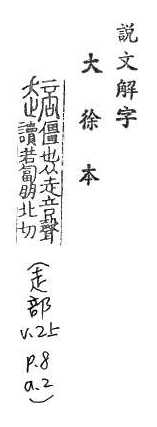 說文解字
大徐本
䞳僵也从走咅聲
讀若匐朋北切
(走部
v.25
p.8
a.2)